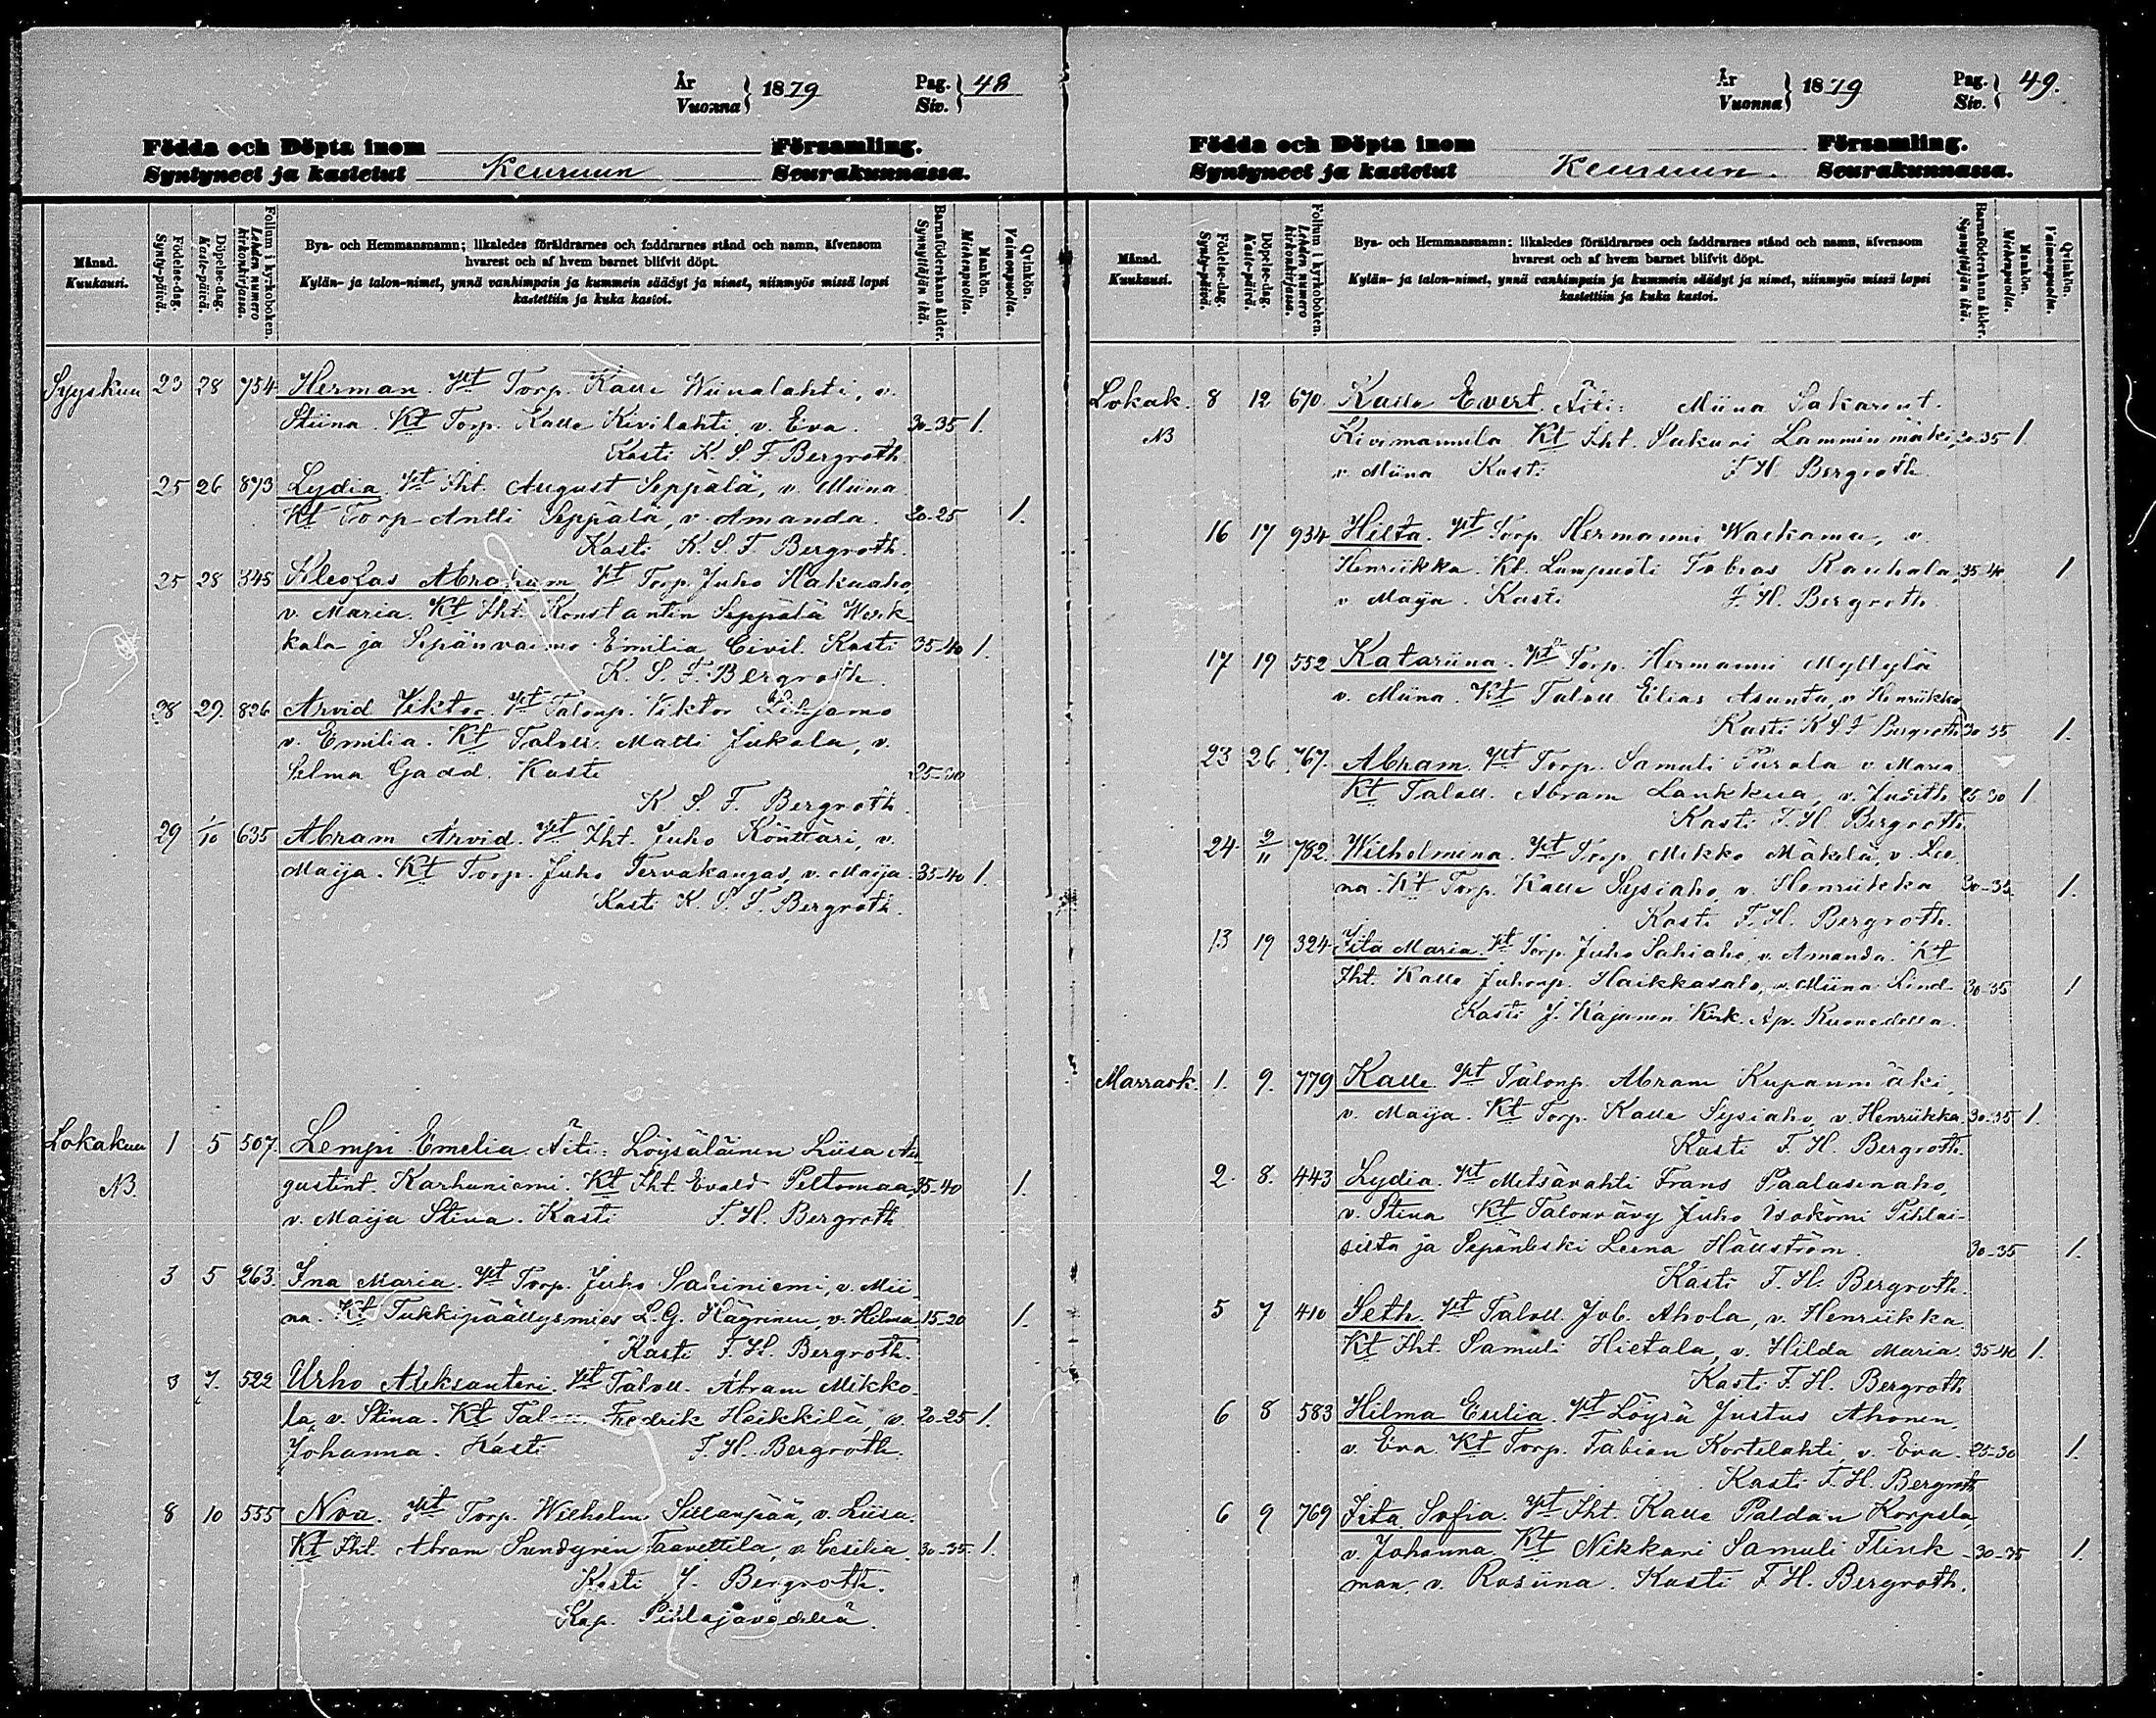 År
Vuonna } 1879
Pag.
Siv. } 48
Födda och Döpta inom Församling.
Syntyneet ja kastetut Keuruun Seurakunnassa.
Månad.
Kuukausi.
Födelse-dag.
Synty-päivä.
Döpelse-dag.
Kaste-päivä.
Folium i kyrkoboken.
Lehden numero kirkonkirjassa.
Bya- och Hemmansnamn; likaledes föräldrarnes och faddrarnes stånd och namn, äfvensom
hvarest och af hvem barnet blifvit döpt.
Kylän- ja talon-nimet, ynnä vanhimpain ja kummein säädyt ja nimet, niinmyös missä lapsi
kastettiin ja kuka kastoi.
Barnaföderskans ålder.
Synnyttäjän ikä.
Mankön.
Miehenpuolta.
Qvinkön.
Vaimonpuolta.
Syyskuu 23 28 754 Herman. Vt Torp. Kalle Wiinalahti, v.
Stiina. Kt Torp. Kalle Kivilahti, v. Eva. 30-35 1.
Kasti K. S. F. Bergroth
25 26 873 Lydia Vt Iht. August Seppälä, v. Miina
Kt Torp Antti Seppälä, v. Amanda. 20-25 1.
Kasti K. S. F. Bergroth.
25 28 345 Kleofas Abraham Vt Torp. Juho Hakuaho,
v. Maria. Kt Iht. Konstantin Seppälä Werk-
kala ja Sepänvaimo Emilia Civil. Kasti 35-40 1.
K. S. F. Bergroth.
28 29. 826 Arvid Viktor Vt Talonp. Viktor Lihjamo
v. Emilia. Kt Taloll. Matti Jukola, v.
Selma Gadd. Kasti 25-30
K. S. F. Bergroth.
29 1/10 635 Abram Arvid. Vt Iht. Juho Könttäri, v.
Maija. Kt Torp. Juho Tervakangas, v. Maija. 35-40 1.
Kasti K. S. F. Bergroth.
Lokakuu 1 5 507 Lempi Emelia. Äiti: Löysäläinen Liisa Au-
NB. gustint. Karhuniemi. Kt Iht. Evald Peltomaa, 35-40 1.
v. Maija Stina. Kasti F. H. Bergroth
3 5 263 Ina Maria. Vt Torp. Juho Sahiniemi, v. Mii-
na. Kt Tukkipäällysmies L. G. Hägrinen, v. Helma. 15-20 1.
Kasti F. H. Bergroth.
3 7. 522 Urho Aleksanteri. Vt Taloll. Abram Mikko-
la, v. Stina. Kt Fredrik Heikkilä, v. 20-25 1.
Johanna. Kasti F. H. Bergroth.
8 10 555 Noa. Vt Torp. Wilhelm Sillanpää, v. Liisa.
Kt Iht. Abram Sundgren Taavettila, v. Cesilia. 30-35. 1.
Kasti J. Bergroth.
Kap. Pihlajavedellä.
År
Vuonna } 1879
Pag.
Siv. } 49.
Födda och Döpta inom Församling.
Syntyneet ja kastetut Keuruun. Seurakunnassa.
Månad.
Kuukausi.
Födelse-dag.
Synty-päivä.
Döpelse-dag.
Kaste-päivä.
Folium i kyrkoboken.
Lehden numero kirkonkirjassa.
Bya- och Hemmansnamn: likaledes föräldrarnes och faddrarnes stånd och namn, äfvensom
hvarest och af hvem barnet blifvit döpt.
Kylän- ja talon-nimet, ynnä vanhimpain ja kummein säädyt ja nimet, niinmyös missä lapsi
kastettiin ja kuka kastoi.
Barnaföderskans ålder.
Synnyttäjän ikä.
Mankön.
Miehenpuolta.
Qvinkön.
Vaimonpuolta.
Lokak. 8 12 670 Kalle Evert. Äiti: Miina Sakarint.
NB Kivimannila Kt Iht. Sakari Lamminmäki, 30-35 1
v. Miina Kasti F H Bergroth
16 17 934 Hilta. Vt Torp. Hermanni Waekama, v.
Henriikka. Kt. Lampuoti Tobias Rauhala, 35-40 1
v Maija. Kasti F. H. Bergroth.
17 19 552 Katariina. Vt Torp. Hermanni Myllylä
v. Miina. Kt Taloll Elias Asunta, v Henriikka
Kasti K S F Bergroth 30-35 1.
23 26 767. Abram. Vt Torp. Samuli Purola v. Maria
Kt Taloll. Abram Laukkua, v. Judith 25-30 1.
Kasti F. H. Bergroth.
24 2/11 782. Wilhelmina. Vt Torp. Mikko Mäkelä, v. Lee-
na. Kt Torp. Kalle Sysiaho, v. Henriikka 30-35 1.
Kasti F. H. Bergroth.
13 19 324 Iita Maria. Vt Torp. Juho Sahiaho, v. Amanda. Kt
Iht. Kalle Juhonp. Haikkasalo, v. Miina Lind- 30-35 1
Kasti J. Kajanen Kirk. Ap. Ruovedellä.
Marrask. 1. 9. 779 Kalle Vt Talonp. Abram Kupanmäki,
v. Maija. Kt Torp. Kalle Sysiaho, v. Henriikka. 30-35 1.
Kasti F. H. Bergroth.
2. 8. 443 Lydia. Vt Metsävahti Frans Paalasenaho,
v. Stina Kt Talonvävy Juho Isokömi Pihlai-
sista ja Sepänleski Leena Hällström. 30-35 1.
Kasti F. H. Bergroth.
5 7 410 Seth. Vt Taloll. Job. Ahola, v. Henriikka
Kt Iht. Samuli Hietala, v. Hilda Maria. 35-40 1.
Kasti F. H. Bergroth
6 8 583 Hilma Eulia. Vt Löysä Justus Ahonen,
v. Eva. Kt Torp. Fabian Kortelahti, v. Eva. 25-30 1.
Kasti F. H. Bergroth
6 9 769 Iita Sofia. Vt Iht. Kalle Paldan Korpela,
v. Johanna. Kt Nikkari Samuli Flink- 30-35 1.
man, v. Rosiina. Kasti F. H. Bergroth.